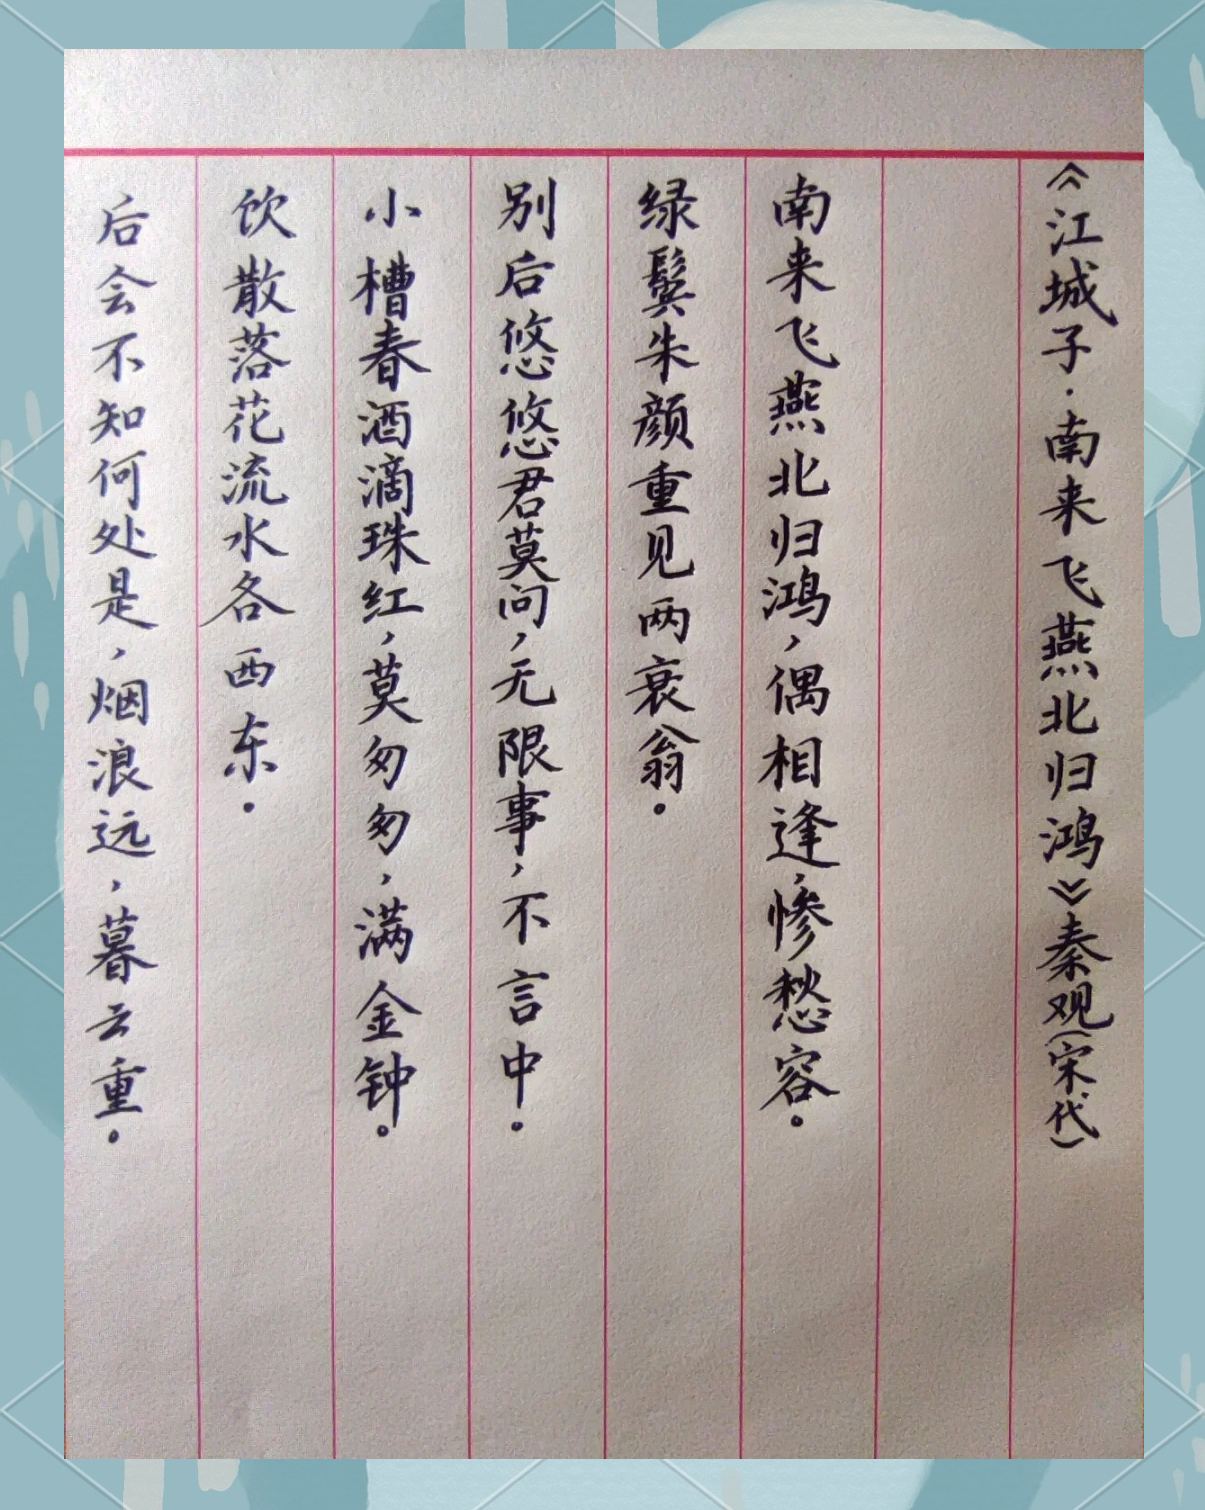 《江城子·南来飞燕北归鸿》秦观(宋代)
南来飞燕北归鸿,偶相逢,惨愁容。
绿鬓朱颜重见两衰翁。
别后悠悠君莫问,无限事,不言中。
小槽春酒滴珠红,莫匆匆,满金钟。
饮散落花流水各西东。
后会不知何处是,烟浪远,暮云重。